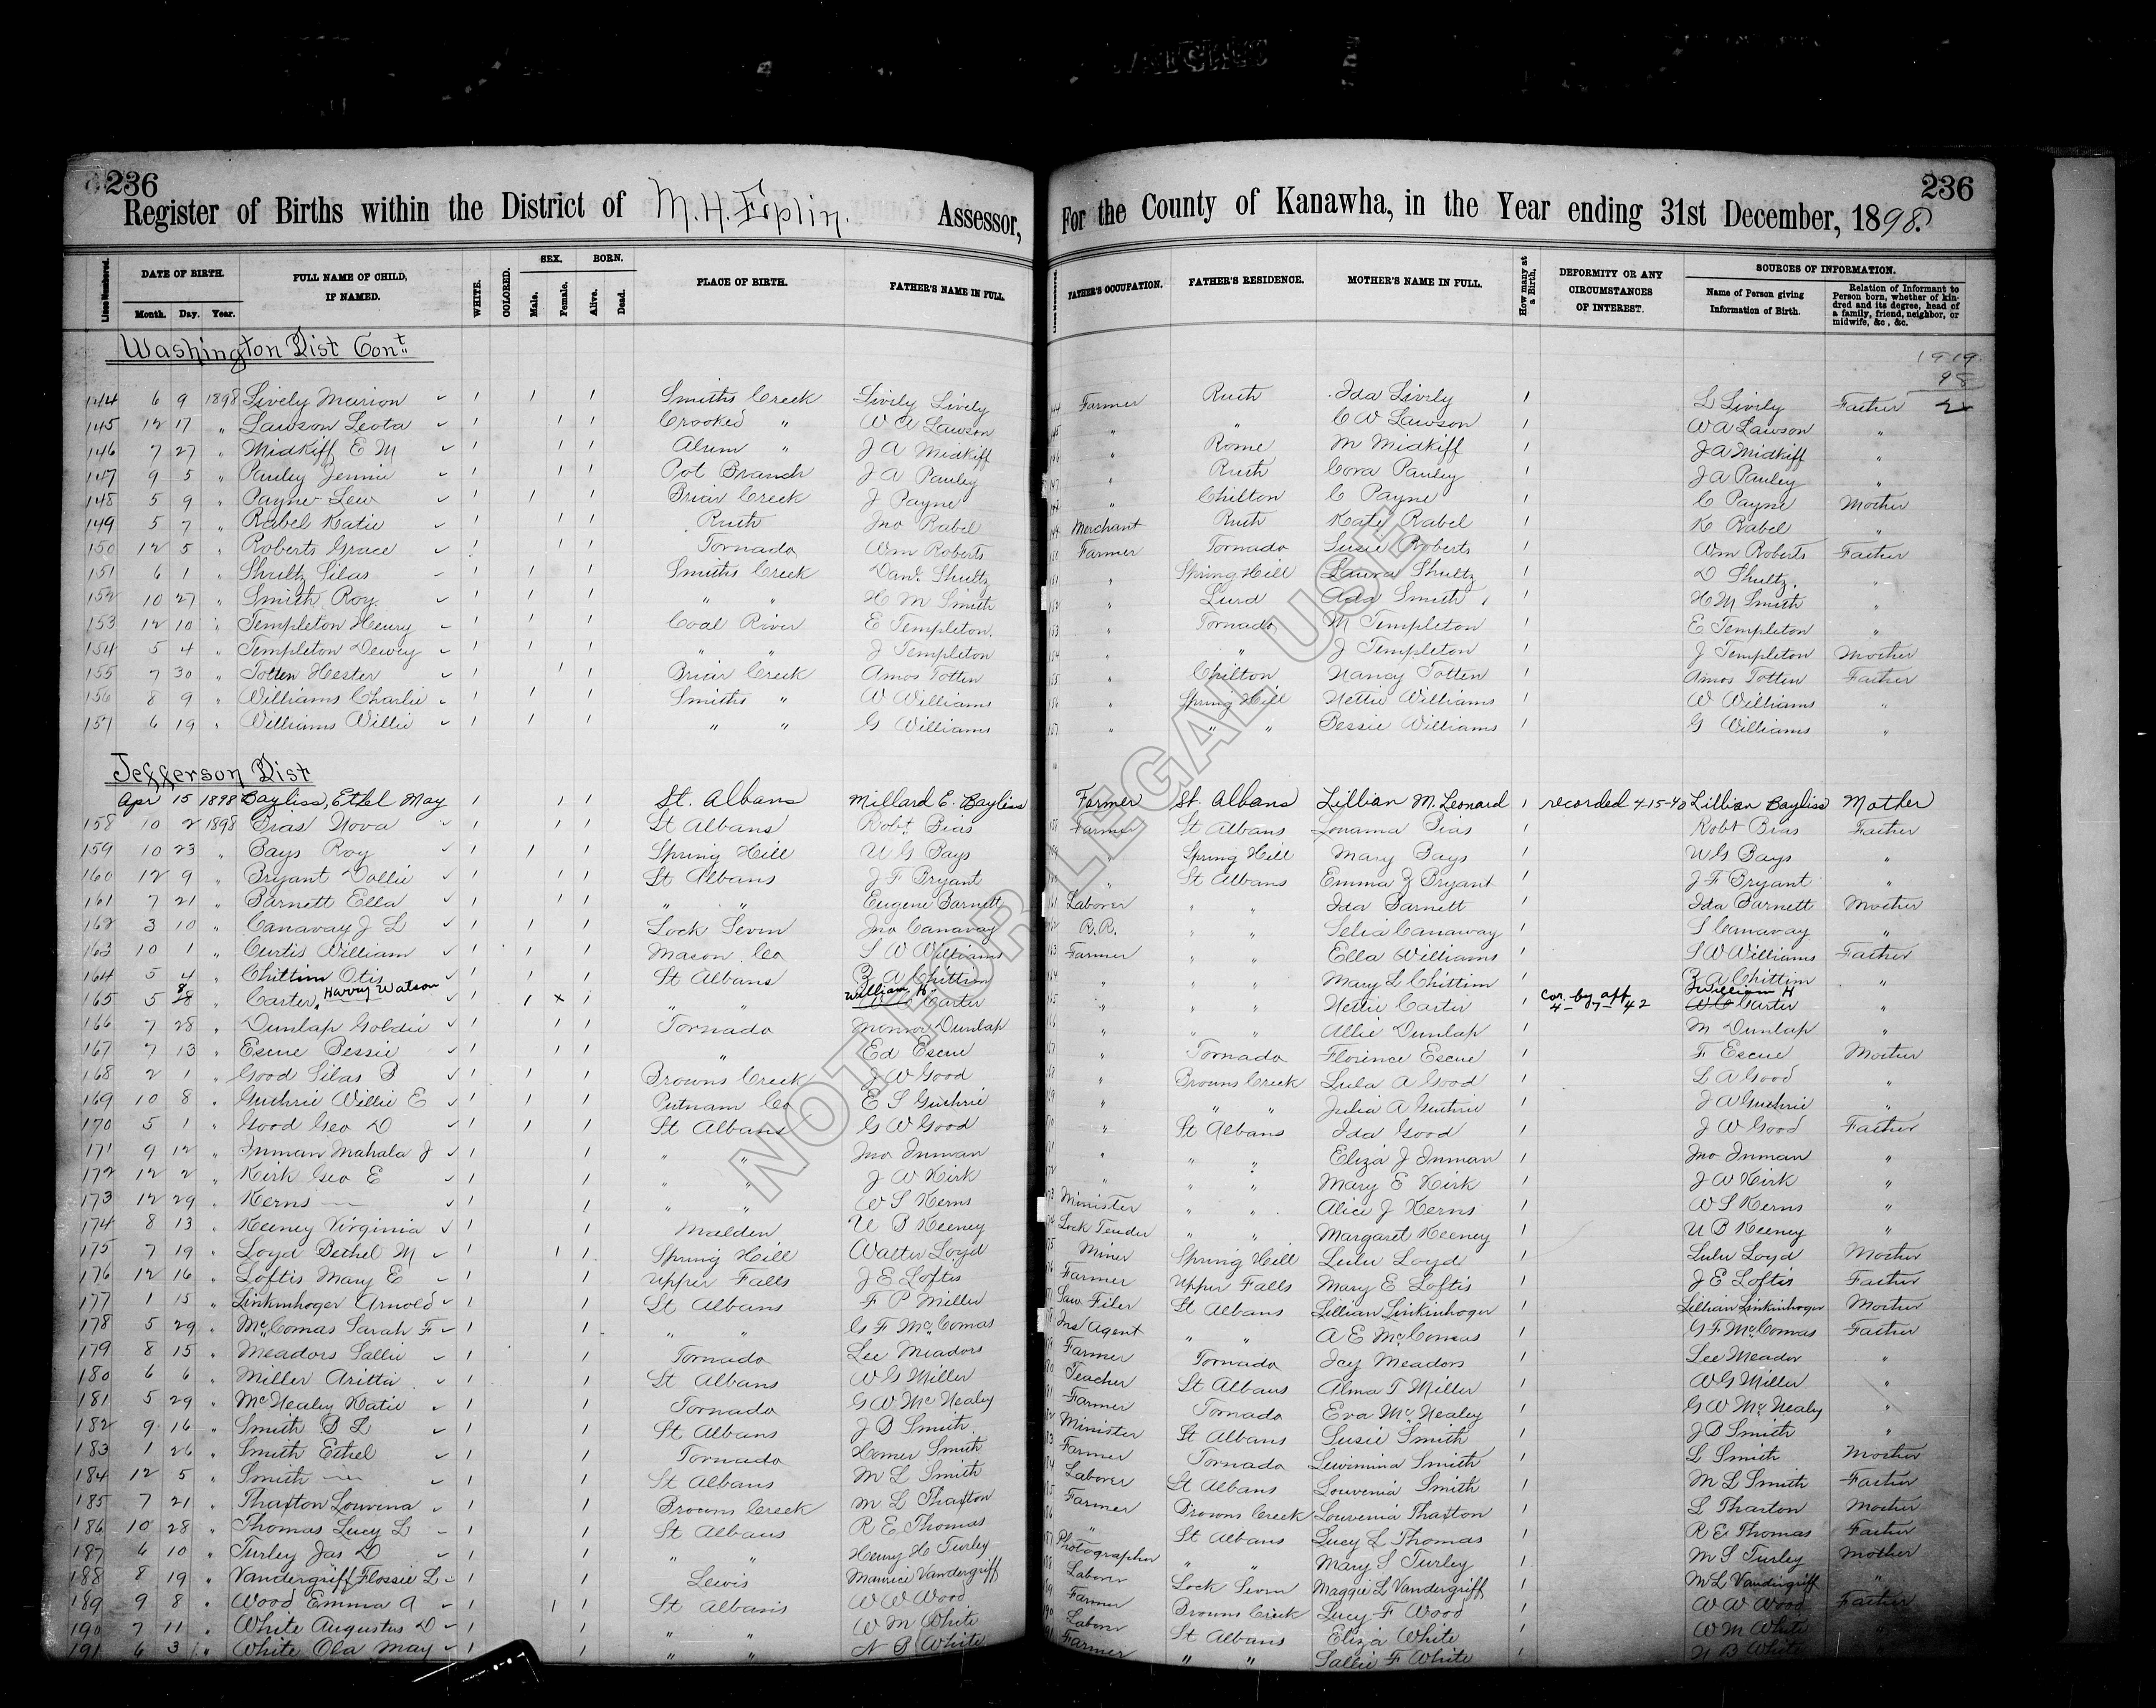 236
236
Register of Births within the District of M. H. Eplin. Assessor, For the County of Kanawha, in the Year ending 31st December, 1898.
Lines Numbered. DATE OF BIRTH. Month. Day. Year. FULL NAME OF CHILD, IF NAMED. WHITE. COLORED. SEX. Male. Female. BORN. Alive. Dead. PLACE OF BIRTH. FATHER'S NAME IN FULL. FATHER'S OCCUPATION. FATHER'S RESIDENCE. MOTHER'S NAME IN FULL. How many at a Birth. DEFORMITY OR ANY CIRCUMSTANCES OF INTEREST. SOURCES OF INFORMATION. Name of Person giving Information of Birth. Relation of Informant to Person born, whether of kindred and its degree, head of a family, friend, neighbor, or midwife, &c., &c.
Washington Dist Cont
1919
98
2
144 6 9 1898 Lively Marion 1 1 1 Smiths Creek Lively Lively Farmer Ruth Ida Lively 1 L Lively Father
145 12 17 " Lawson Leota 1 1 1 Crooked " W A Lawson " " C W Lawson 1 W A Lawson "
146 7 27 " Midkiff E M 1 1 1 Alum " J A Midkiff " Rome M Midkiff 1 J A Midkiff "
147 9 5 " Pauley Jennie 1 1 1 Cot Branch J A Pauley " Ruth Cora Pauley 1 J A Pauley "
148 5 9 " Payne Lew 1 1 1 Briar Creek J Payne " Chilton C Payne 1 C Payne Mother
149 5 7 " Rabel Katie 1 1 1 Ruth Jno Rabel Merchant Ruth Kate Rabel 1 K Rabel "
150 12 5 " Roberts Grace 1 1 1 Tornado Wm Roberts Farmer Tornado Susie Roberts 1 Wm Roberts Father
151 6 1 " Shultz Silas 1 1 1 Smiths Creek Danl Shultz " Spring Hill Laura Shultz 1 D Shultz "
152 10 27 " Smith Roy 1 1 1 " " H M Smith " Lurd Ada Smith 1 H M Smith "
153 12 10 " Templeton Henry 1 1 1 Coal River E Templeton " Tornado M Templeton 1 E Templeton "
154 5 4 " Templeton Dewey 1 1 1 " " J Templeton " " J Templeton 1 J Templeton Mother
155 7 30 " Totten Hester 1 1 1 Briar Creek Amos Totten " Chilton Nancy Totten 1 Amos Totten Father
156 8 9 " Williams Charlie 1 1 1 Smiths " W Williams " Spring Hill Nettie Williams 1 W Williams "
157 6 19 " Williams Willie 1 1 1 " " G Williams " " " Bessie Williams 1 G Williams "
Jefferson Dist
Apr 15 1898 Bayliss, Ethel May 1 1 1 St. Albans Millard E. Bayliss Farmer St. Albans Lillian M. Leonard 1 recorded 4-15-40 Lillian Bayliss Mother
158 10 2 1898 Bias Nova 1 1 1 St Albans Robt Bias Farmer St Albans Lorrama Bias 1 Robt Bias Father
159 10 23 " Bays Roy 1 1 1 Spring Hill U G Bays " Spring Hill Mary Bays 1 U G Bays "
160 12 9 " Bryant Dollie 1 1 1 St Albans J F Bryant " St Albans Emma Z Bryant 1 J F Bryant "
161 7 21 " Barnett Ella 1 1 1 " " Eugene Barnett Laborer " " Ida Barnett 1 Ida Barnett Mother
162 3 10 " Canavay J L 1 1 1 Lock Seven Jno Canavay R.R. " " Selia Canaway 1 S Canavay "
163 10 1 " Curtis William 1 1 1 Mason Co S W Williams Farmer " " Ella Williams 1 S W Williams Father
164 5 4 " Chittim Otis 1 1 1 St Albans Z A Chittim " " " Mary L Chittim 1 Z A Chittim "
165 5 28 8 " Carter, Harry Watson 1 1 x 1 " " William H. Carter " " " Nettie Carter 1 Cor. by aff 4-7-42 William H W C Carter "
166 7 28 " Dunlap Goldie 1 1 1 Tornado Monroe Dunlap " " " Allie Dunlap 1 M Dunlap "
167 7 13 " Escue Bessie 1 1 1 " Ed Escue " Tornado Florence Escue 1 F Escue Mother
168 2 1 " Good Silas B 1 1 1 Browns Creek J W Good " Browns Creek Lula A Good 1 L A Good "
169 10 8 " Guthrie Willie E 1 1 1 Putnam Co E S Guthrie " " " Julia A Guthrie 1 J A Guthrie "
170 5 1 " Good Geo D 1 1 1 St Albans G W Good " St Albans Ida Good 1 J W Good Father
171 9 12 " Inman Mahala J 1 1 " " Jno Inman " " " Eliza J Inman 1 Jno Inman "
172 12 2 " Kirk Geo E 1 1 " " J W Kirk " " " Mary E Kirk 1 J W Kirk "
173 12 29 " Kerns — 1 1 " " W S Kerns Minister " " Alice J Kerns 1 W S Kerns "
174 8 13 " Keeney Virginia 1 1 Malden U B Keeney Lock Tender " " Margaret Keeney 1 U B Keeney "
175 7 19 " Loyd Bethel M 1 1 1 Spring Hill Walter Loyd Miner Spring Hill Lulu Loyd 1 Lulu Loyd Mother
176 12 16 " Loftis Mary E 1 1 Upper Falls J E Loftis Farmer Upper Falls Mary E Loftis 1 J E Loftis Father
177 1 15 " Linkinhoger Arnold 1 1 St Albans F P Miller Saw Filer St Albans Lillian Linkinhoger 1 Lillian Linkinhoger Mother
178 5 29 " McComas Sarah F 1 1 " " G F McComas Ins Agent " " A E McComas 1 G F McComas Father
179 8 15 " Meadors Sallie 1 1 Tornado Lee Meadors Farmer Tornado Icy Meadors 1 Lee Meador "
180 6 6 " Miller Aritta 1 1 St Albans W G Miller Teacher St Albans Alma T Miller 1 W G Miller "
181 5 29 " McNealey Katie 1 1 Tornado G W McNealey Farmer Tornado Eva McNealey 1 G W McNealy "
182 9 16 " Smith B L 1 1 St Albans J B Smith Minister St Albans Susie Smith 1 J B Smith "
183 1 26 " Smith Ethel 1 1 Tornado Homer Smith Farmer Tornado Lewimina Smith 1 L Smith Mother
184 12 5 " Smith — 1 1 St Albans M L Smith Laborer St Albans Louvenia Smith 1 M L Smith Father
185 7 21 " Thaxton Louvena 1 1 Browns Creek M L Thaxton Farmer Browns Creek Louvenia Thaxton 1 L Thaxton Mother
186 10 28 " Thomas Lucy L 1 1 St Albans R E Thomas " St Albans Lucy L Thomas 1 R E Thomas Father
187 6 10 " Turley Jas D 1 1 " " Henry H Turley Photographer " " Mary S Turley 1 M S Turley Mother
188 8 19 " Vandergriff Flossie L 1 1 Lewis Maurice Vandergriff Laborer Lock Seven Maggie L Vandergriff 1 M L Vandergriff "
189 9 8 " Wood Emma A 1 1 1 St Albans W W Wood Farmer Browns Creek Lucy F Wood 1 W W Wood Father
190 7 11 " White Augustus D 1 1 " " W M White Laborer St Albans Eliza White 1 W M White
191 6 3 " White Ola May 1 1 " " N B White Farmer " " Sallie F White 1 N B White
NOT FOR LEGAL USE